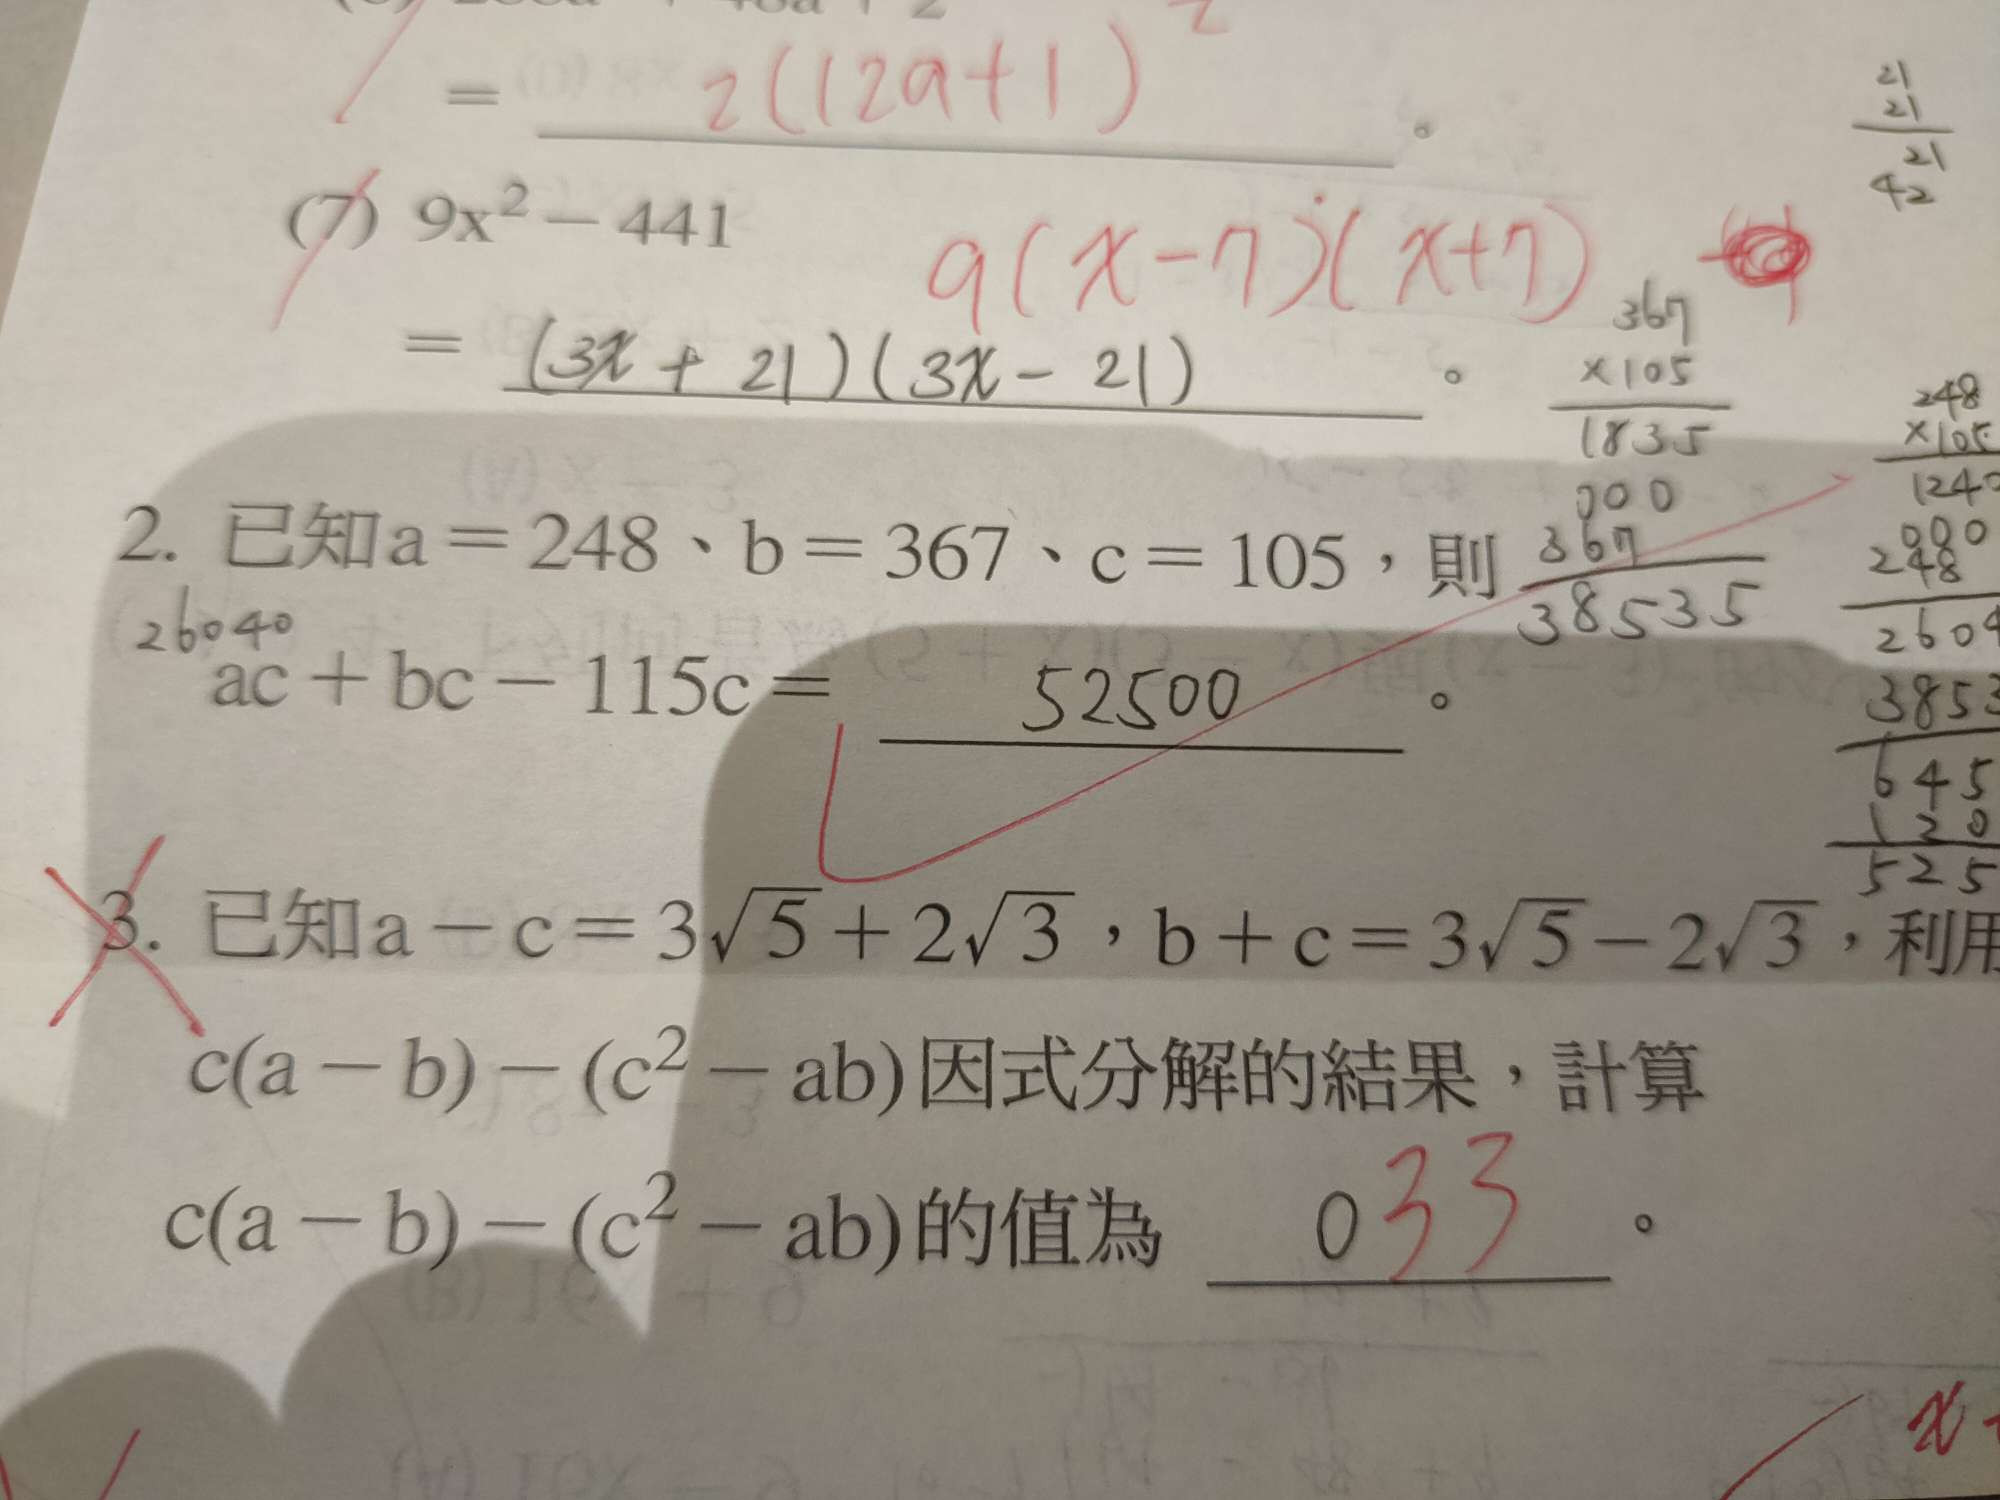 = 2(12a+1)²。
(7) 9x²－441
9(x-7)(x+7)
= (3x+21)(3x-21)。
21
21
21
42
367
×105
1835
000
367
38535
248
×105
1240
000
248
2604
3853
645
120
525
2. 已知a＝248、b＝367、c＝105，則
26040
ac＋bc－115c＝ 52500 。
3. 已知a－c＝3√5＋2√3，b＋c＝3√5－2√3，利用
c(a－b)－(c²－ab)因式分解的結果，計算
c(a－b)－(c²－ab)的值為 0 33 。